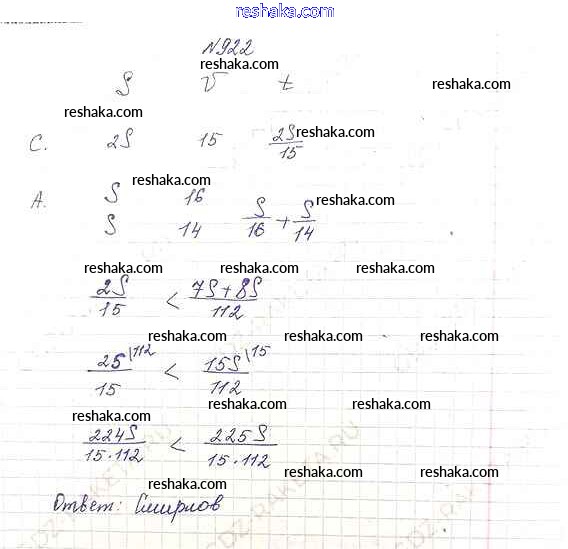 reshaka.com
N922
reshaka.com
S V t reshaka.com
reshaka.com
C. 2S 15 2S/15 reshaka.com
reshaka.com
A. S 16 reshaka.com
S 14 S/16 + S/14
reshaka.com reshaka.com reshaka.com
2S/15 < 7S+8S/112
reshaka.com reshaka.com reshaka.com
2S|112/15 < 15S|15/112
reshaka.com reshaka.com reshaka.com
224S/15·112 < 225S/15·112
reshaka.com reshaka.com
Ответ: Смирнов
reshaka.com reshaka.com